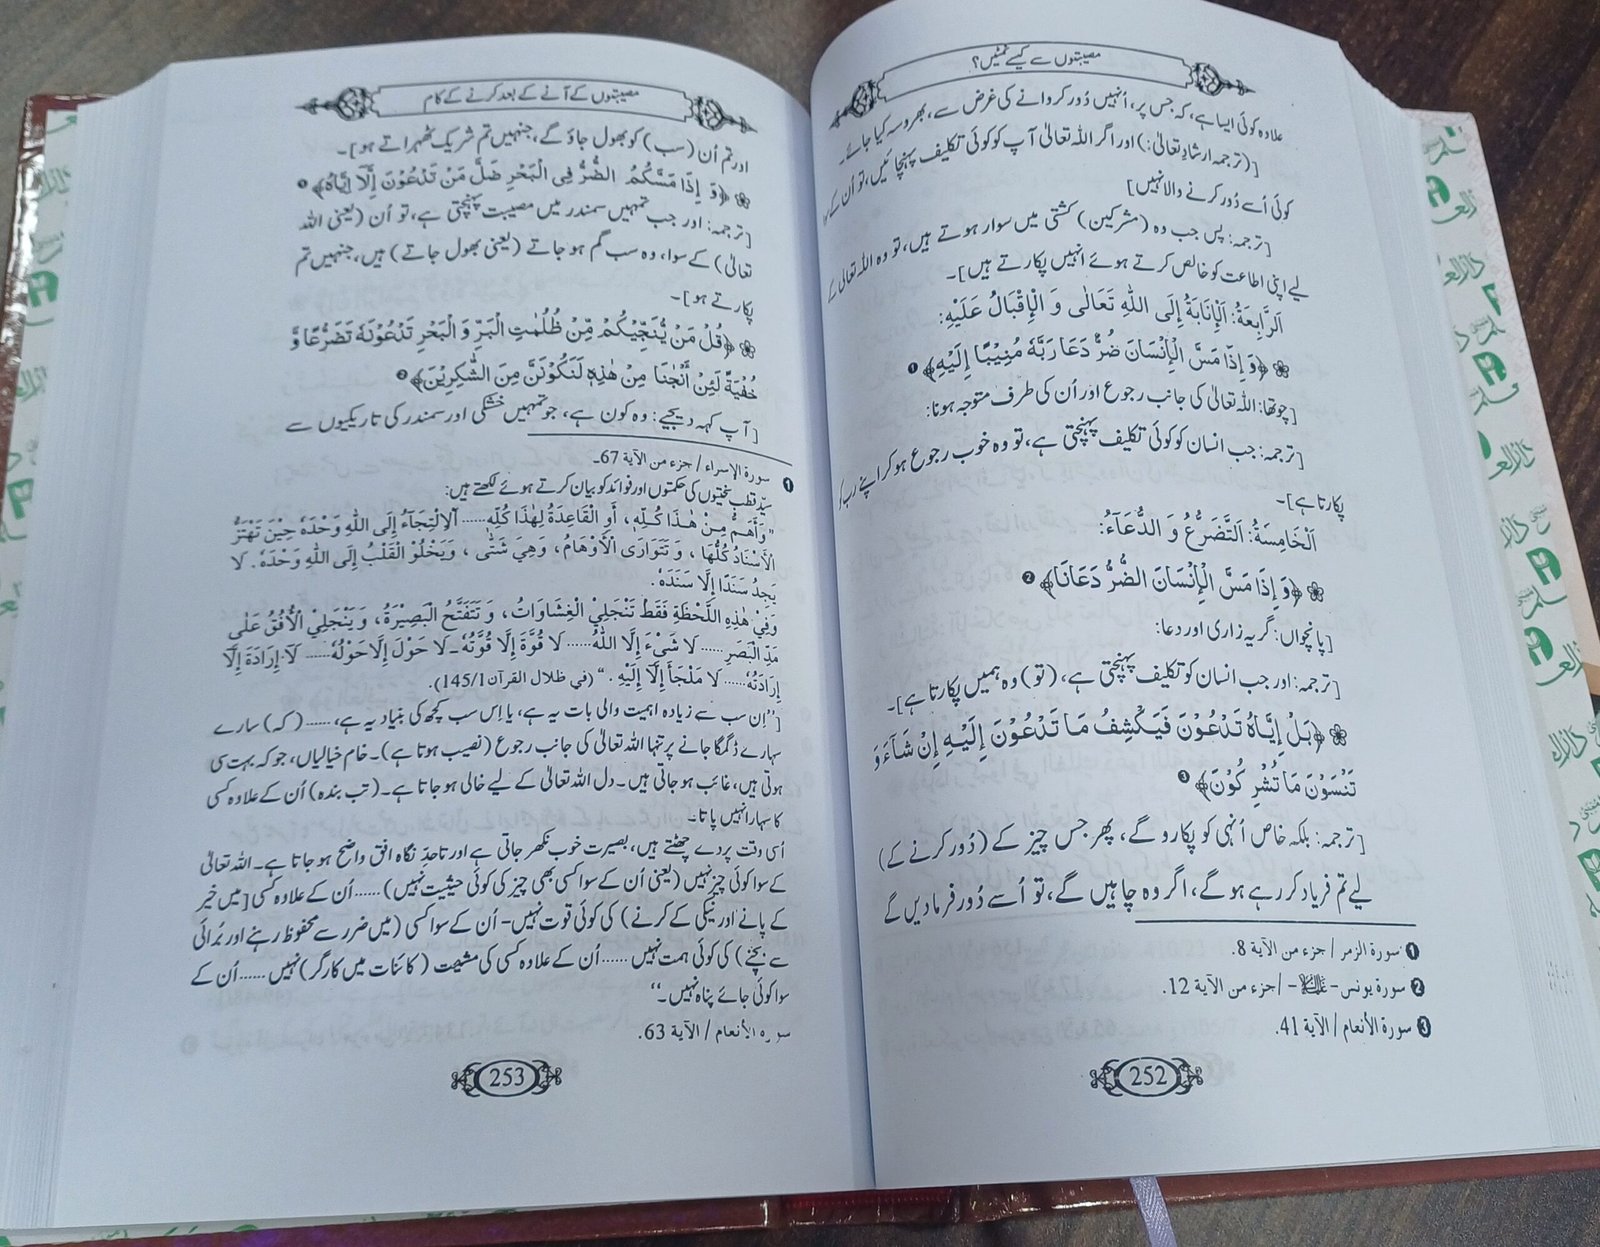 مصیبتوں سے کیسے نمٹیں؟
علاوہ کوئی ایسا ہے، کہ جس پر، اُنہیں دُور کروانے کی غرض سے، بھروسہ کیا جائے۔
[(ترجمہ ارشادِ تعالیٰ:) اور اگر اللہ تعالیٰ آپ کو کوئی تکلیف پہنچائیں، تو اُن کے سوا
کوئی اُسے دُور کرنے والا نہیں]
[ترجمہ: پس جب وہ (مشرکین) کشتی میں سوار ہوتے ہیں، تو وہ اللہ تعالیٰ کے
لیے اپنی اطاعت کو خالص کرتے ہوئے انہیں پکارتے ہیں]۔
اَلرَّابِعَةُ: اَلْإِنَابَةُ إِلَى اللّٰهِ تَعَالٰى وَ الْإِقْبَالُ عَلَيْهِ:
﴿وَ إِذَا مَسَّ الْإِنْسَانَ ضُرٌّ دَعَا رَبَّهٗ مُنِيْبًا إِلَيْهِ﴾ ❶
[چوتھا: اللہ تعالیٰ کی جانب رجوع اور اُن کی طرف متوجہ ہونا:
[ترجمہ: جب انسان کو کوئی تکلیف پہنچتی ہے، تو وہ خوب رجوع ہو کر اپنے رب کو
پکارتا ہے]۔
اَلْخَامِسَةُ: اَلتَّضَرُّعُ وَ الدُّعَآءُ:
﴿وَ إِذَا مَسَّ الْإِنْسَانَ الضُّرُّ دَعَانَا﴾ ❷
[پانچواں: گریہ زاری اور دعا:
[ترجمہ: اور جب انسان کو تکلیف پہنچتی ہے، (تو) وہ ہمیں پکارتا ہے]۔
﴿بَلْ إِيَّاهُ تَدْعُوْنَ فَيَكْشِفُ مَا تَدْعُوْنَ إِلَيْهِ إِنْ شَآءَ وَ
تَنْسَوْنَ مَا تُشْرِكُوْنَ﴾ ❸
[ترجمہ: بلکہ خاص اُنہی کو پکارو گے، پھر جس چیز کے (دُور کرنے کے)
لیے تم فریاد کر رہے ہو گے، اگر وہ چاہیں گے، تو اُسے دُور فرما دیں گے
❶ سورة الزمر / جزء من الآية 8.
❷ سورة يونس - علیہ السلام - / جزء من الآية 12.
❸ سورة الأنعام / الآية 41.
252
مصیبتوں کے آنے کے بعد کرنے کے کام
اور تم اُن (سب) کو بھول جاؤ گے، جنہیں تم شریک ٹھہراتے ہو]۔
﴿وَ إِذَا مَسَّكُمُ الضُّرُّ فِي الْبَحْرِ ضَلَّ مَنْ تَدْعُوْنَ إِلَّا إِيَّاهُ﴾ ❶
[ترجمہ: اور جب تمہیں سمندر میں مصیبت پہنچتی ہے، تو اُن (یعنی اللہ
تعالیٰ) کے سوا، وہ سب گم ہو جاتے (یعنی بھول جاتے) ہیں، جنہیں تم
پکارتے ہو]۔
﴿قُلْ مَنْ يُّنَجِّيْكُمْ مِّنْ ظُلُمٰتِ الْبَرِّ وَ الْبَحْرِ تَدْعُوْنَهٗ تَضَرُّعًا وَّ
خُفْيَةً لَئِنْ أَنْجٰنَا مِنْ هٰذِهٖ لَنَكُوْنَنَّ مِنَ الشّٰكِرِيْنَ﴾ ❷
[آپ کہہ دیجیے: وہ کون ہے، جو تمہیں خشکی اور سمندر کی تاریکیوں سے
❶ سورة الإسراء / جزء من الآية 67۔
سیّد قطب سختیوں کی حکمتوں اور فوائد کو بیان کرتے ہوئے لکھتے ہیں:
”وَأَهَمُّ مِنْ هٰذَا كُلِّهِ، أَوِ الْقَاعِدَةُ لِهٰذَا كُلِّهِ...... اَلْاِلْتِجَآءُ إِلَى اللّٰهِ وَحْدَهٗ حِيْنَ تَهْتَزُّ
الْأَسْنَادُ كُلُّهَا، وَ تَتَوَارَى الْأَوْهَامُ، وَهِيَ شَتّٰى، وَيَخْلُوْ الْقَلْبُ إِلَى اللّٰهِ وَحْدَهٗ. لَا
يَجِدُ سَنَدًا إِلَّا سَنَدَهٗ.
وَفِيْ هٰذِهِ اللَّحْظَةِ فَقَطْ تَنْجَلِيْ الْغِشَاوَاتُ، وَ تَتَفَتَّحُ الْبَصِيْرَةُ، وَ يَنْجَلِيْ الْأُفُقُ عَلٰى
مَدِّ الْبَصَرِ...... لَا شَيْءَ إِلَّا اللّٰهُ...... لَا قُوَّةَ إِلَّا قُوَّتُهٗ - لَا حَوْلَ إِلَّا حَوْلُهٗ...... لَا إِرَادَةَ إِلَّا
إِرَادَتُهٗ...... لَا مَلْجَأَ إِلَّا إِلَيْهِ.“ (في ظلال القرآن 145/1).
[”اِن سب سے زیادہ اہمیت والی بات یہ ہے، یا اِس سب کچھ کی بنیاد یہ ہے، ...... (کہ) سارے
سہارے ڈگمگا جانے پر تنہا اللہ تعالیٰ کی جانب رجوع (نصیب ہوتا ہے)۔ خام خیالیاں، جو کہ بہت سی
ہوتی ہیں، غائب ہو جاتی ہیں۔ دل اللہ تعالیٰ کے لیے خالی ہو جاتا ہے۔ (تب بندہ) اُن کے علاوہ کسی
کا سہارا نہیں پاتا۔
اُسی وقت پردے چھٹتے ہیں، بصیرت خوب نکھر جاتی ہے اور تاحدِّ نگاہ افق واضح ہو جاتا ہے۔ اللہ تعالیٰ
کے سوا کوئی چیز نہیں (یعنی اُن کے سوا کسی بھی چیز کی کوئی حیثیت نہیں) ...... اُن کے علاوہ کسی [میں خیر
کے پانے اور نیکی کے کرنے) کی کوئی قوت نہیں- اُن کے سوا کسی (میں ضرر سے محفوظ رہنے اور بُرائی
سے بچنے) کی کوئی ہمت نہیں ...... اُن کے علاوہ کسی کی مشیت (کائنات میں کارگر) نہیں ...... اُن کے
سوا کوئی جائے پناہ نہیں۔“
سورة الأنعام / الآية 63.
253